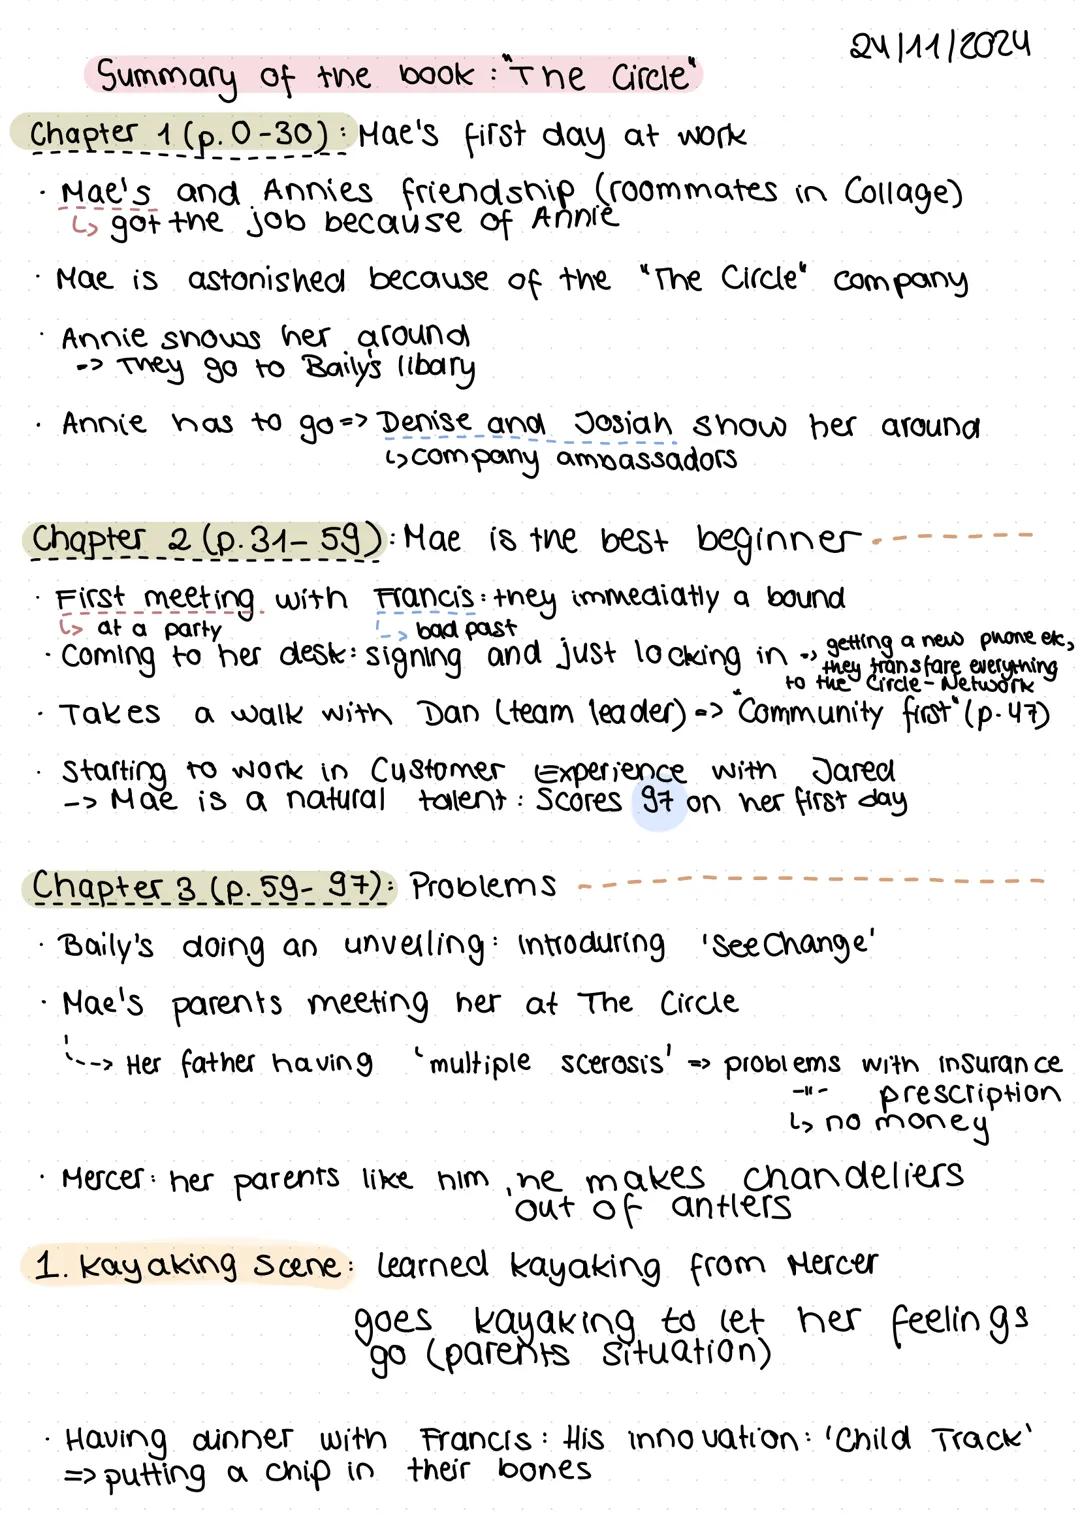 24/11/2024
Summary of the book : "The Circle"
Chapter 1 (p. 0-30) : Mae's first day at work
· Mae's and Annies friendship (roommates in Collage)
↳ got the job because of Annie
· Mae is astonished because of the "The Circle" company
· Annie shows her around
-> They go to Baily's libary
· Annie has to go => Denise and Josiah show her around
↳ company ambassadors
Chapter 2 (p. 31- 59) : Mae is the best beginner
· First meeting with Francis : they immediatly a bound
↳ at a party ↳ bad past
· Coming to her desk : signing and just locking in -> getting a new phone etc,
they transfare everything
to the Circle - Network
· Takes a walk with Dan (team leader) => "Community first" (p. 47)
· Starting to work in Customer Experience with Jared
-> Mae is a natural talent : Scores 97 on her first day
Chapter 3 (p. 59- 97) : Problems
· Baily's doing an unveiling : introduring 'SeeChange'
· Mae's parents meeting her at The Circle
--> Her father having 'multiple scerosis' => problems with insurance
-"- prescription
↳ no money
· Mercer : her parents like him , he makes chandeliers
out of antlers
1. Kayaking Scene : learned kayaking from Mercer
goes kayaking to let her feelings
go (parents situation)
· Having dinner with Francis : His innovation : 'Child Track'
=> putting a chip in their bones